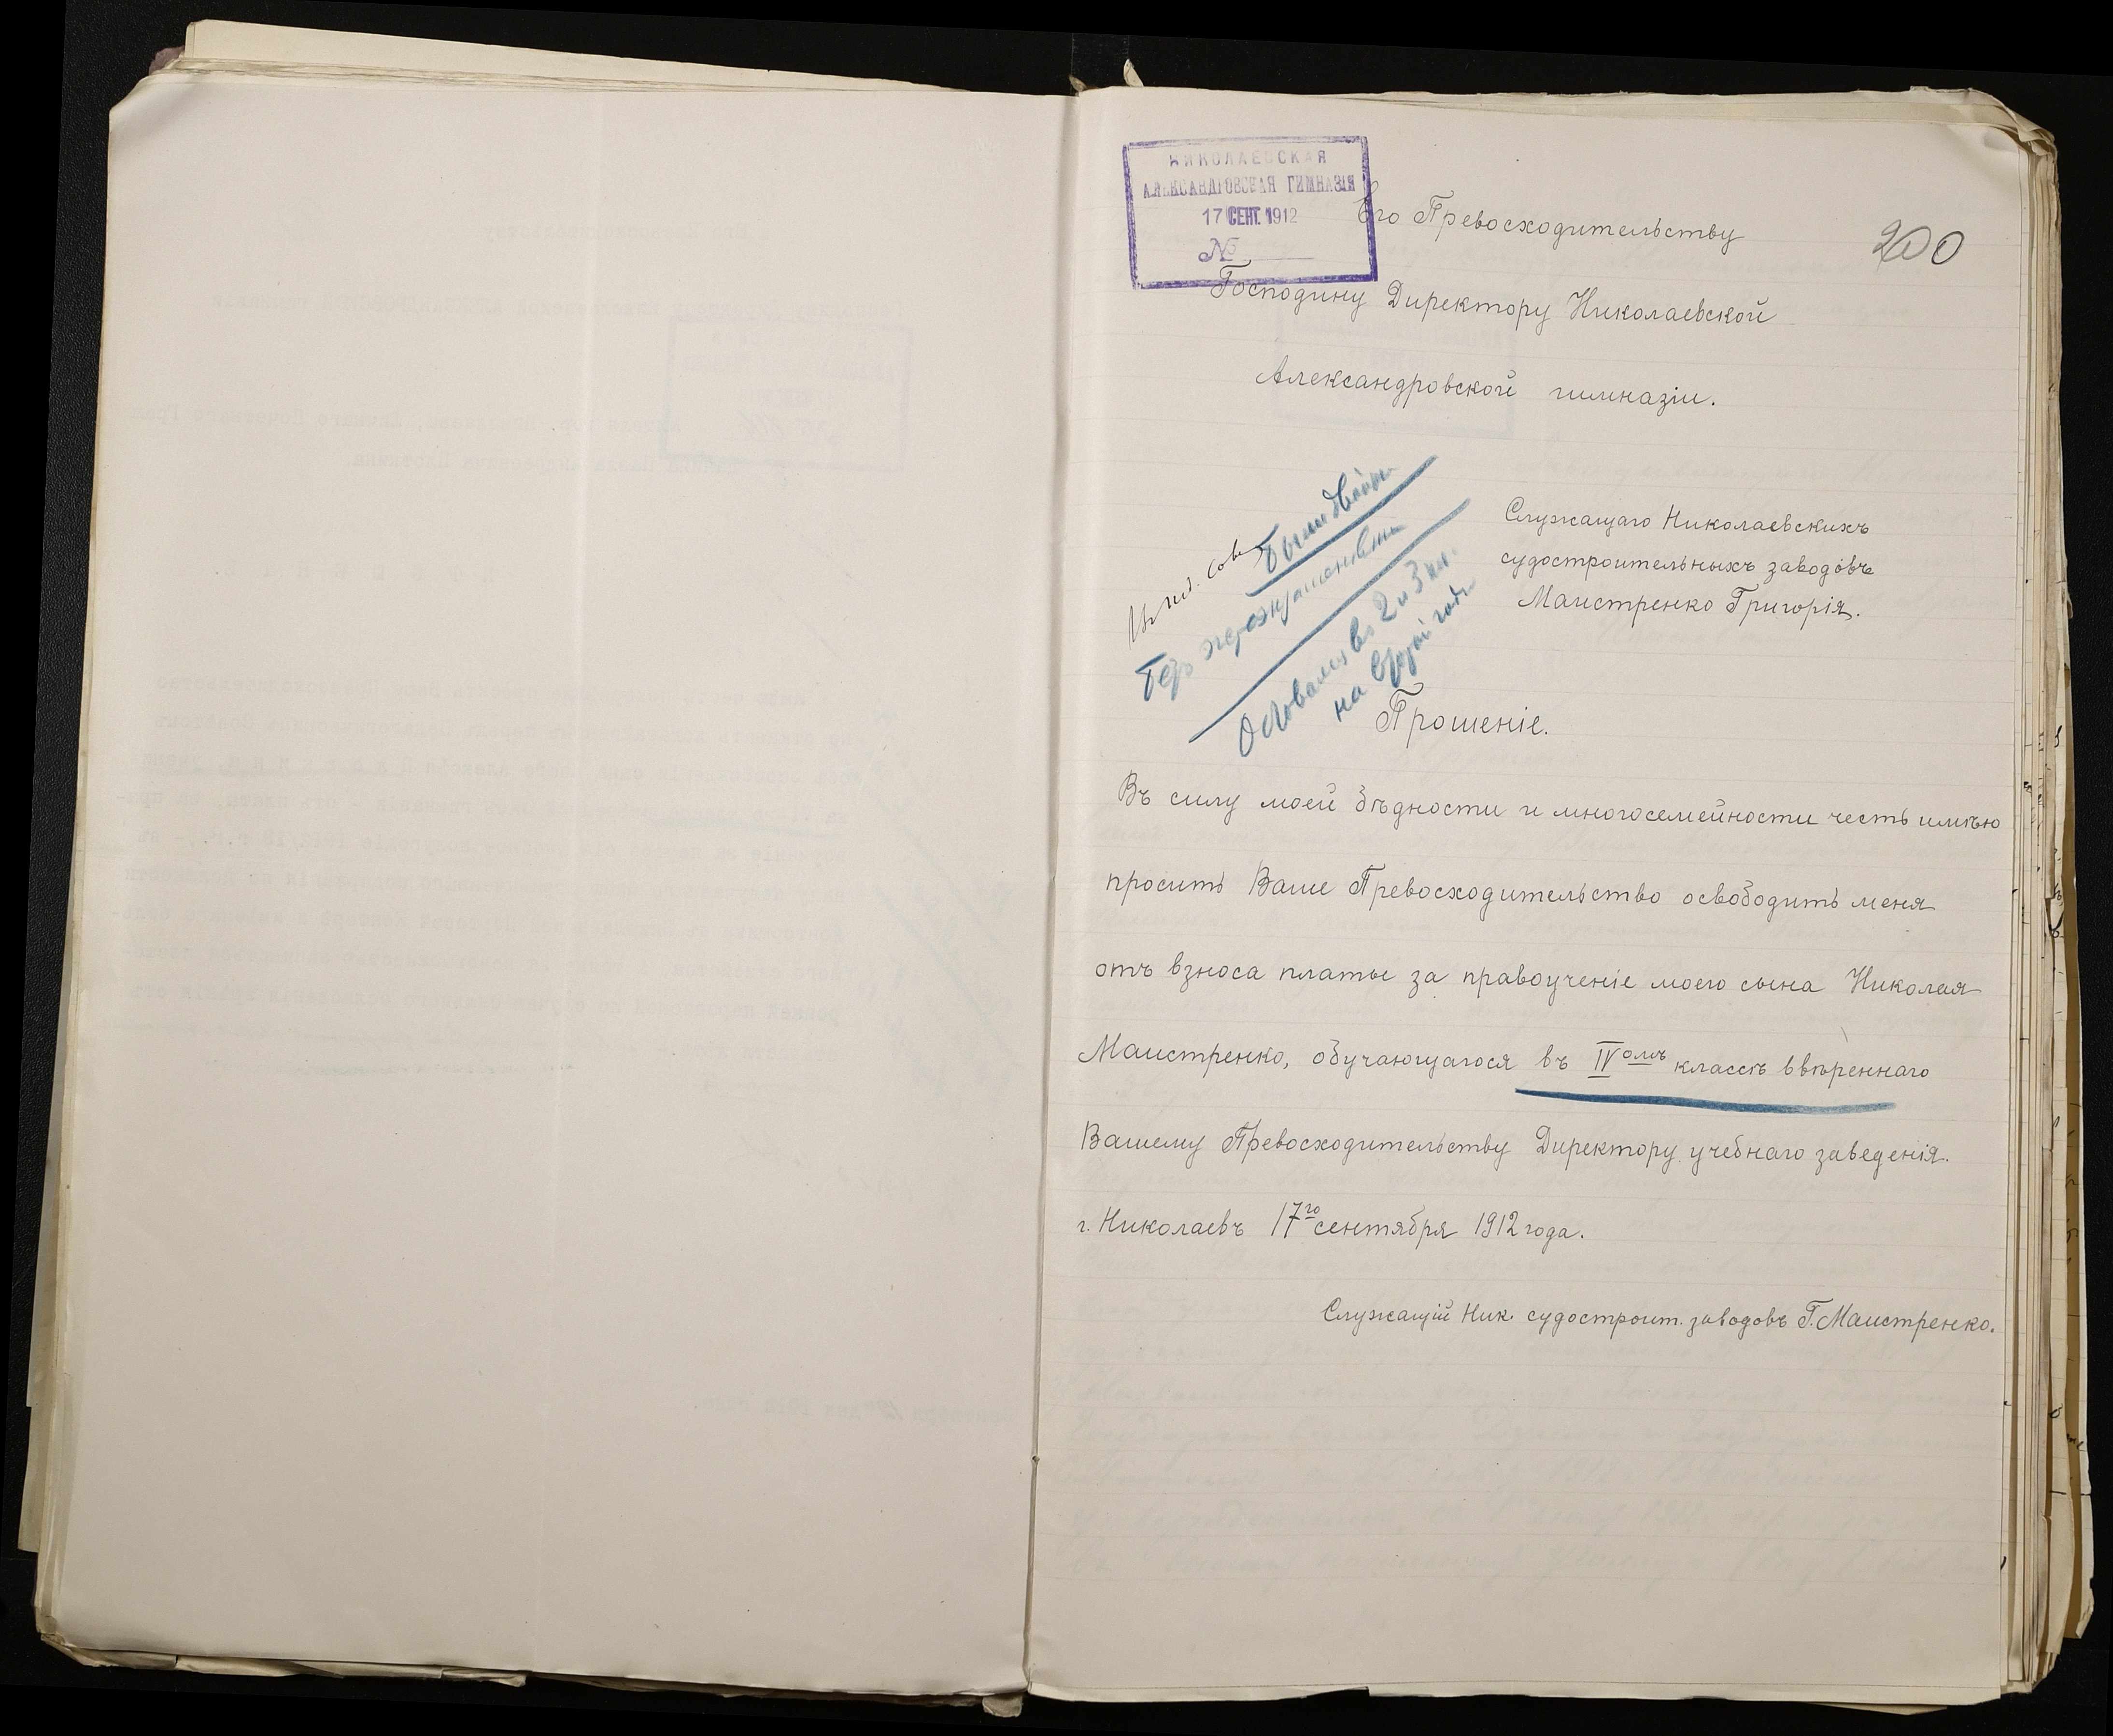 НИКОЛАЕВСКАЯ
АЛЕКСАНДРОВСКАЯ ГИМНАЗІЯ
17 СЕНТ. 1912
№
Его Превосходительству
200
Господину Директору Николаевской
Александровской гимназіи.
Служащаго Николаевскихъ
судостроительныхъ заводовъ
Маистренко Григорія.
Были двойки
Безъ
Оставался въ 2 и 3 кл.
на второй годъ
Прошеніе.
Въ силу моей бѣдности и многосемейности честь имѣю
просить Ваше Превосходительство освободить меня
отъ взноса платы за правоученіе моего сына Николая
Маистренко, обучающагося въ IVомъ классѣ ввѣреннаго
Вашему Превосходительству Директору учебнаго заведенія.
г. Николаевъ 17го сентября 1912 года.
Служащій Ник. судостроит. заводовъ Г. Маистренко.